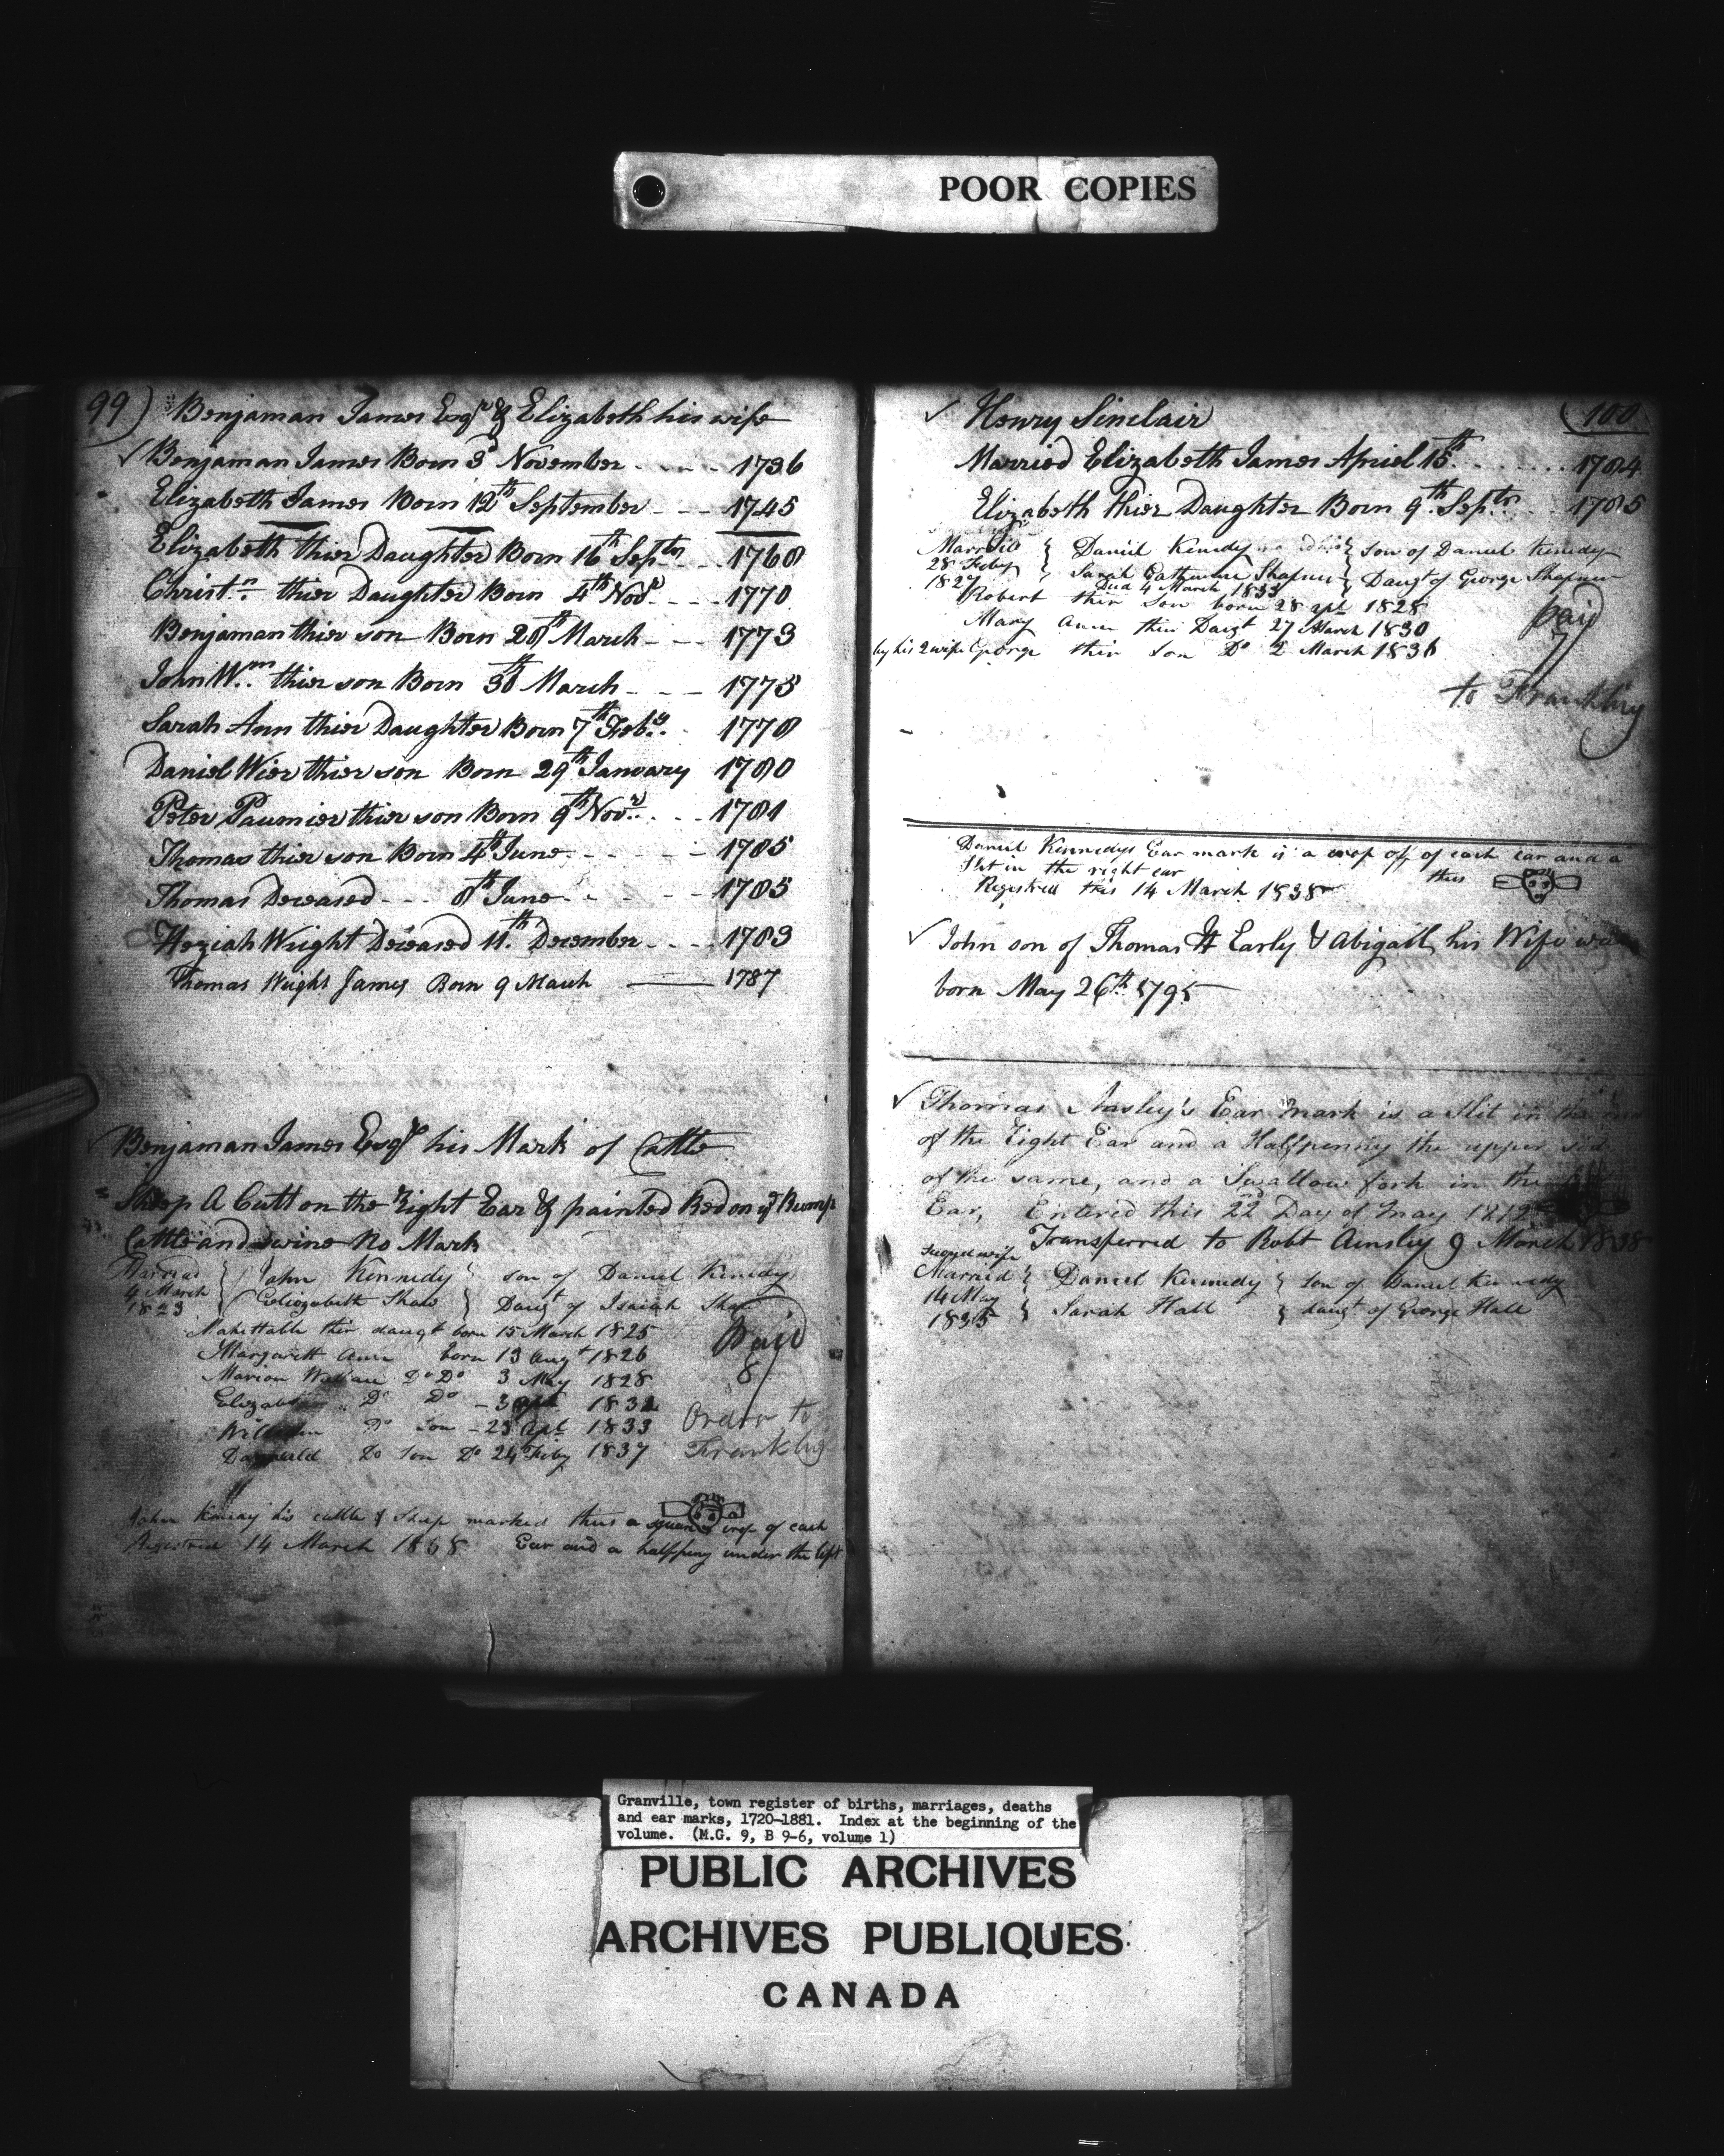 POOR COPIES
99)
Benjaman James Esqr & Elizabeth his wife
Benjaman James Born 3d November - - - - 1736
Elizabeth James Born 12th September - - - 1745
Elizabeth thier Daughter Born 16th Septr - - 1768
Christn thier Daughter Born 4th Novr - - - 1770
Benjaman thier son Born 28th March - - - 1773
John Wm thier son Born 30th March - - - 1775
Sarah Ann thier Daughter Born 7th Feby - 1778
Daniel Wier thier son Born 29th January 1780
Peter Paumier thier son Born 9th Novr - - - 1781
Thomas thier son Born 4th June - - - - - 1785
Thomas Deceased - - - 8th June - - - - 1785
Keziah Wright Deceased 11th December - - - 1783
Thomas Wright James Born 9 March — 1787
Benjaman James Esqr his Mark of Cattle
Sheep A Cutt on the Right Ear & painted Red on ye Rump
Cattle and swine No Mark
Married
4 March
1823
John Kennedy son of Daniel Kenedy
Eliozabeth Shaw Daugt of Isaiah Shaw
Mahettable thir daugt born 15 March 1825
Margarett Ann born 13 Augt 1826
Marion Do Do 3 May 1828
Do Do - 3 1832
William Do Son - 23 Apl 1833
Do Son Do 24 Feby 1837
Paid
8/
Order to
John his cattle & Sheep marked thus a square crop of each
14 March Ear and a halfpeny under the left
(100
Henry Sinclair
Married Elizabeth James Apriel 15th - - - - 1784
Elizabeth thier Daughter Born 9th Septr - - 1785
Married
28 Feby
1827
Daniel Kenedy son of Daniel Kenedy
Sarah Catherine Shafner Daugt of George Shafner
Died 4 March 1833
Robert thir Son born 28 Apl 1828
Mary Ann thir Daugt 27 March 1830
by his 2 wife George thir Son Do 2 March 1836
paid
7/
to
Daniel Kennedys Ear mark is a crop off of each ear and a
slit in the right ear thus
Registred this 14 March 1838
John son of Thomas H Early & Abigail his Wife was
born May 26th 1795
Thomas Ansley's Ear mark is a slit in the end
of the Right Ear and a Halfpenny the upper side
of the same, and a Swallow fork in the
Ear, Entered this 22nd Day of may 1812
Transferred to Robt Ainsley 9 March 1838
Second wife
Married
14 May
1835
Daniel Kennedy Son of Daniel Kennedy
Sarah Hall daugt of George Hall
Granville, town register of births, marriages, deaths
and ear marks, 1720-1881. Index at the beginning of the
volume. (M.G. 9, B 9-6, volume 1)
PUBLIC ARCHIVES
ARCHIVES PUBLIQUES
CANADA